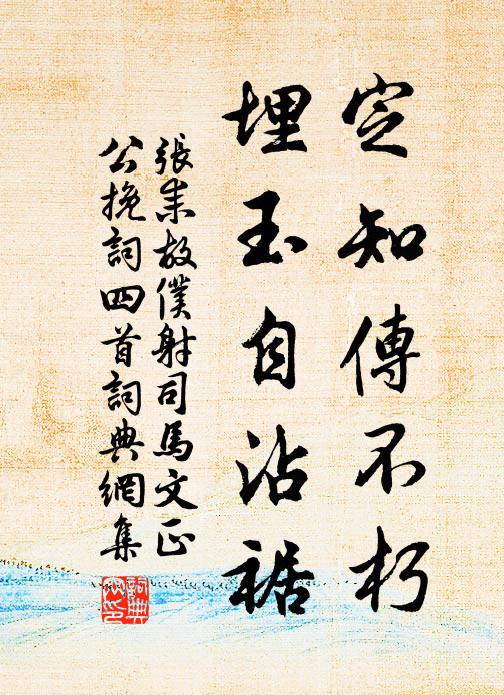 定知傳不朽
埋玉自沾裾
張耒故僕射司馬文正
公挽詞四首詞典網集